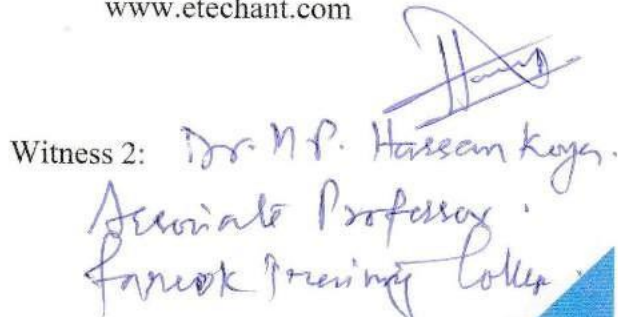 www.etechant.com
Witness 2: Dr. M P. Hassan Koya.
Associate Professor.
Farook Training College.